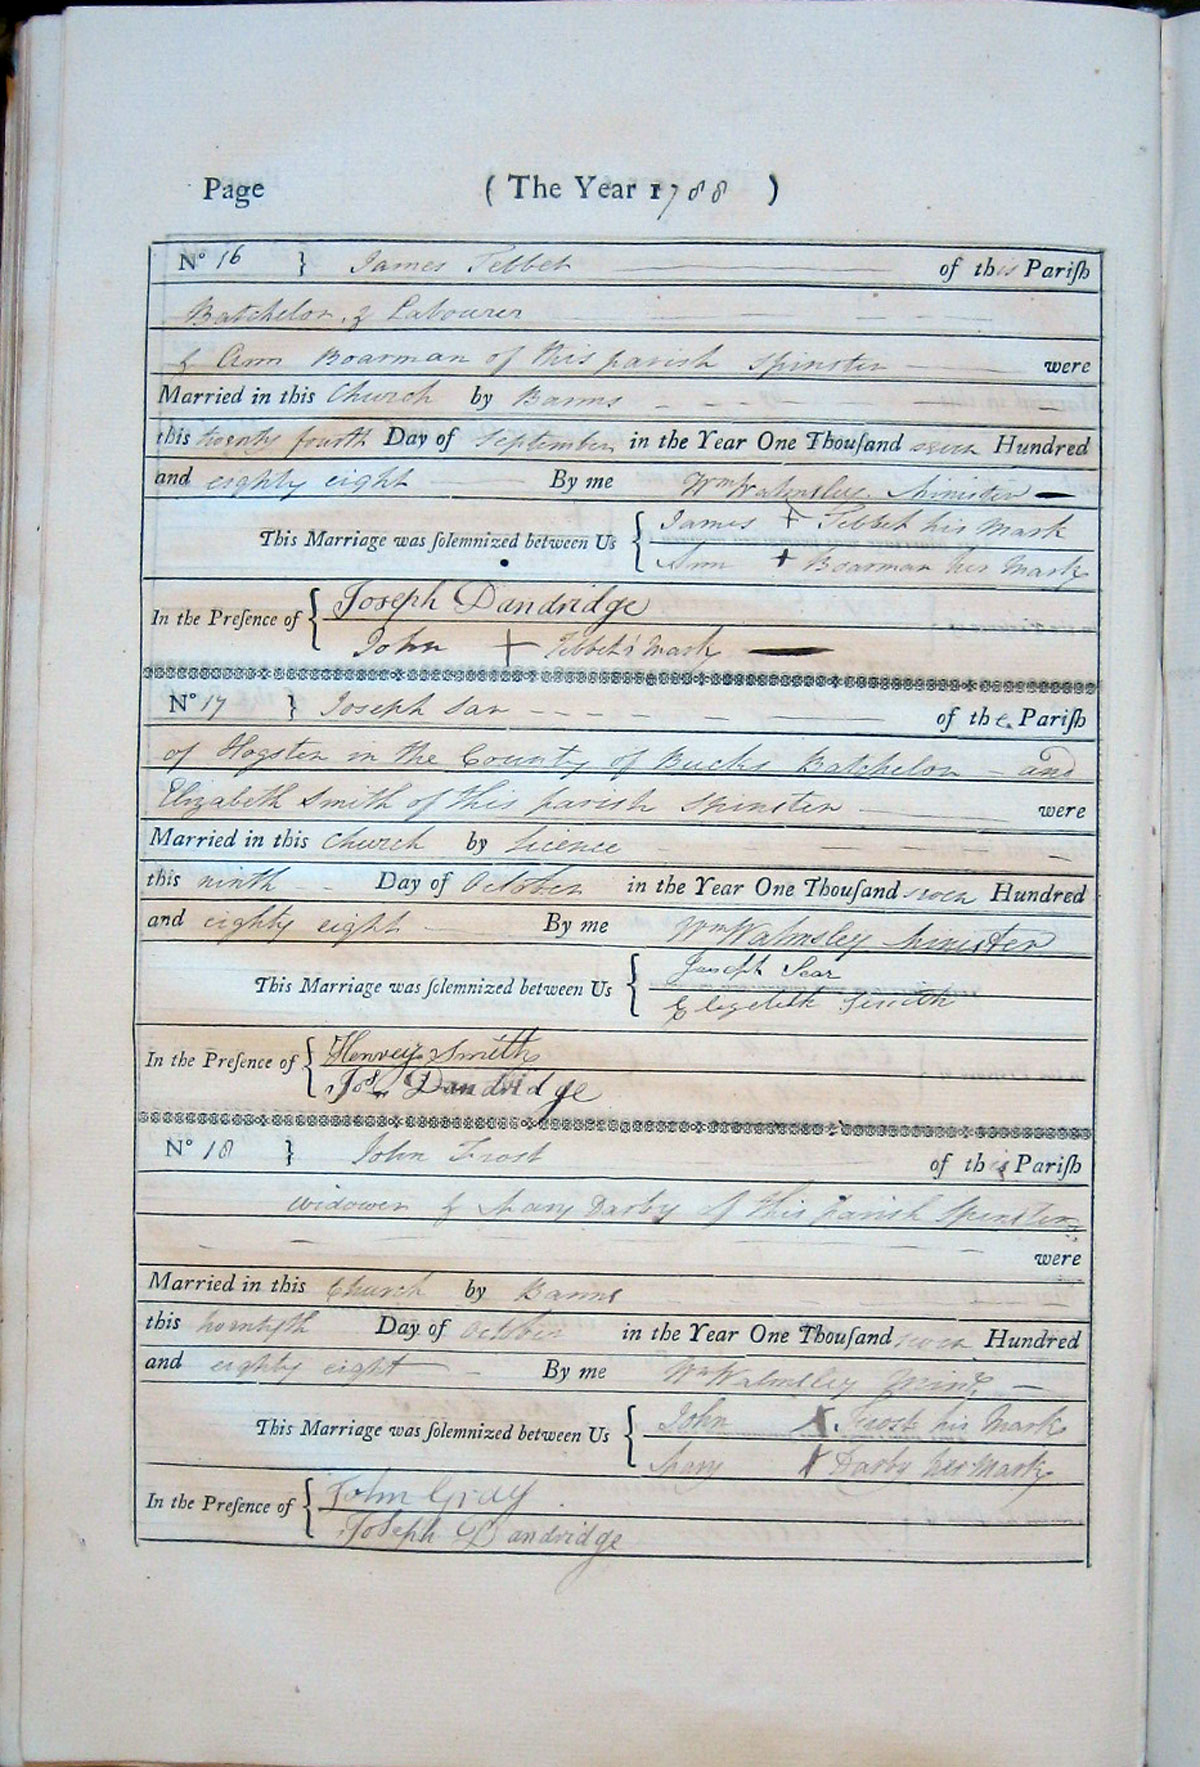 Page ( The Year 1788 )
No 16 } James Tebbet of this Pariſh
Batchelor & Labourer
& Ann Boarman of this parish Spinster were
Married in this Church by Banns
this twenty fourth Day of September in the Year One Thouſand seven Hundred
and eighty eight By me Wm Walmsley Minister
This Marriage was ſolemnized between Us { James + Tebbet his Mark
Ann + Boarman her Mark
In the Preſence of { Joseph Dandridge
John + Tebbet's Mark
No 17 } Joseph Sar of the Pariſh
of Hogsten in the County of Bucks Batchelor and
Elizabeth Smith of this parish Spinster were
Married in this Church by Licence
this ninth Day of October in the Year One Thouſand seven Hundred
and eighty eight By me Wm Walmsley Minister
This Marriage was ſolemnized between Us { Joseph Sear
Elizebeth Smith
In the Preſence of { Henrey Smith
Jos. Dandridge
No 18 } John Frost of this Pariſh
widower & Mary Darby of this parish Spinster
were
Married in this Church by Banns
this twentyth Day of October in the Year One Thouſand seven Hundred
and eighty eight By me Wm Walmsley
This Marriage was ſolemnized between Us { John X Frost his Mark
Mary X Darby her Mark
In the Preſence of { John Gray
Joseph Dandridge